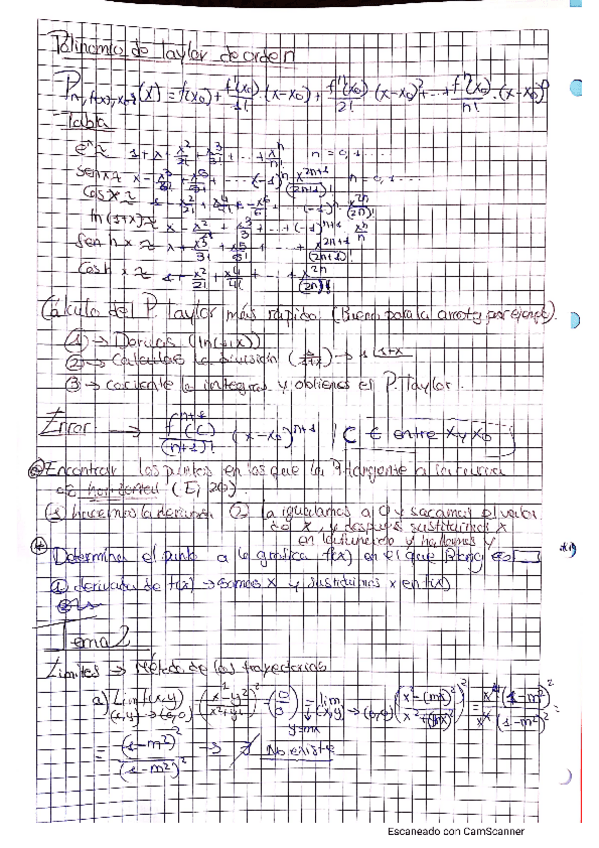 Polinomio de Taylor de orden n
P n, f(x), x=x0 (x) = f(x0) + f'(x0)/1! · (x-x0) + f''(x0)/2! · (x-x0)² + ... + fⁿ(x0)/n! · (x-x0)ⁿ
Tabla
eˣ ≈ 1 + x + x²/2! + x³/3! + ... + xⁿ/n! n = 0, 1 ....
sen x ≈ x - x³/3! + x⁵/5! + ... (-1)ⁿ x²ⁿ⁺¹/(2n+1)! n = 0, 1 ....
Cos x ≈ 1 - x²/2! + x⁴/4! - x⁶/6! + (-1)ⁿ x²ⁿ/(2n)!
ln(1+x) ≈ x - x²/2 + x³/3 + ... + (-1)ⁿ⁺¹ xⁿ/n
Sen h x ≈ x + x³/3! + x⁵/5! + ... + x²ⁿ⁺¹/(2n+1)!
Cosh x ≈ 1 + x²/2! + x⁴/4! + ... + x²ⁿ/(2n)!
Cálculo del P. Taylor más rápido. (Bueno para la arcotg por ejemplo).
① → Derivas (ln(1+x))
② → Calculas la división → 1 |1+x
③ → cociente lo integras y obtienes el P. Taylor.
Error → fⁿ⁺¹(c)/(n+1)! (x-x0)ⁿ⁺¹ | C ∈ entre x y x0
Encontrar los puntos en los que la Rtangente a la curva
es horizontal
① hacemos la derivada ② la igualamos a 0 y sacamos el valor
de x, y después sustituimos x
en la función y hallamos y
Determina el punto a la gráfica f(x) en el que Rtang es
① derivada de f(x) → sacamos x y sustituimos x en f(x)
Tema 2
Límites → Método de las trayectorias
a) Lim f(x,y) (x,y) → (0,0) (x²-y²/x²+y²)² = (0/0) = lim (x,y) → (0,0) y=mx (x²-(mx)²/x²+(mx)²)² = x⁴(1-m²)²/x⁴(1-m²)² =
= (1-m²)²/(1-m²)² → ∄ No existe
Escaneado con CamScanner